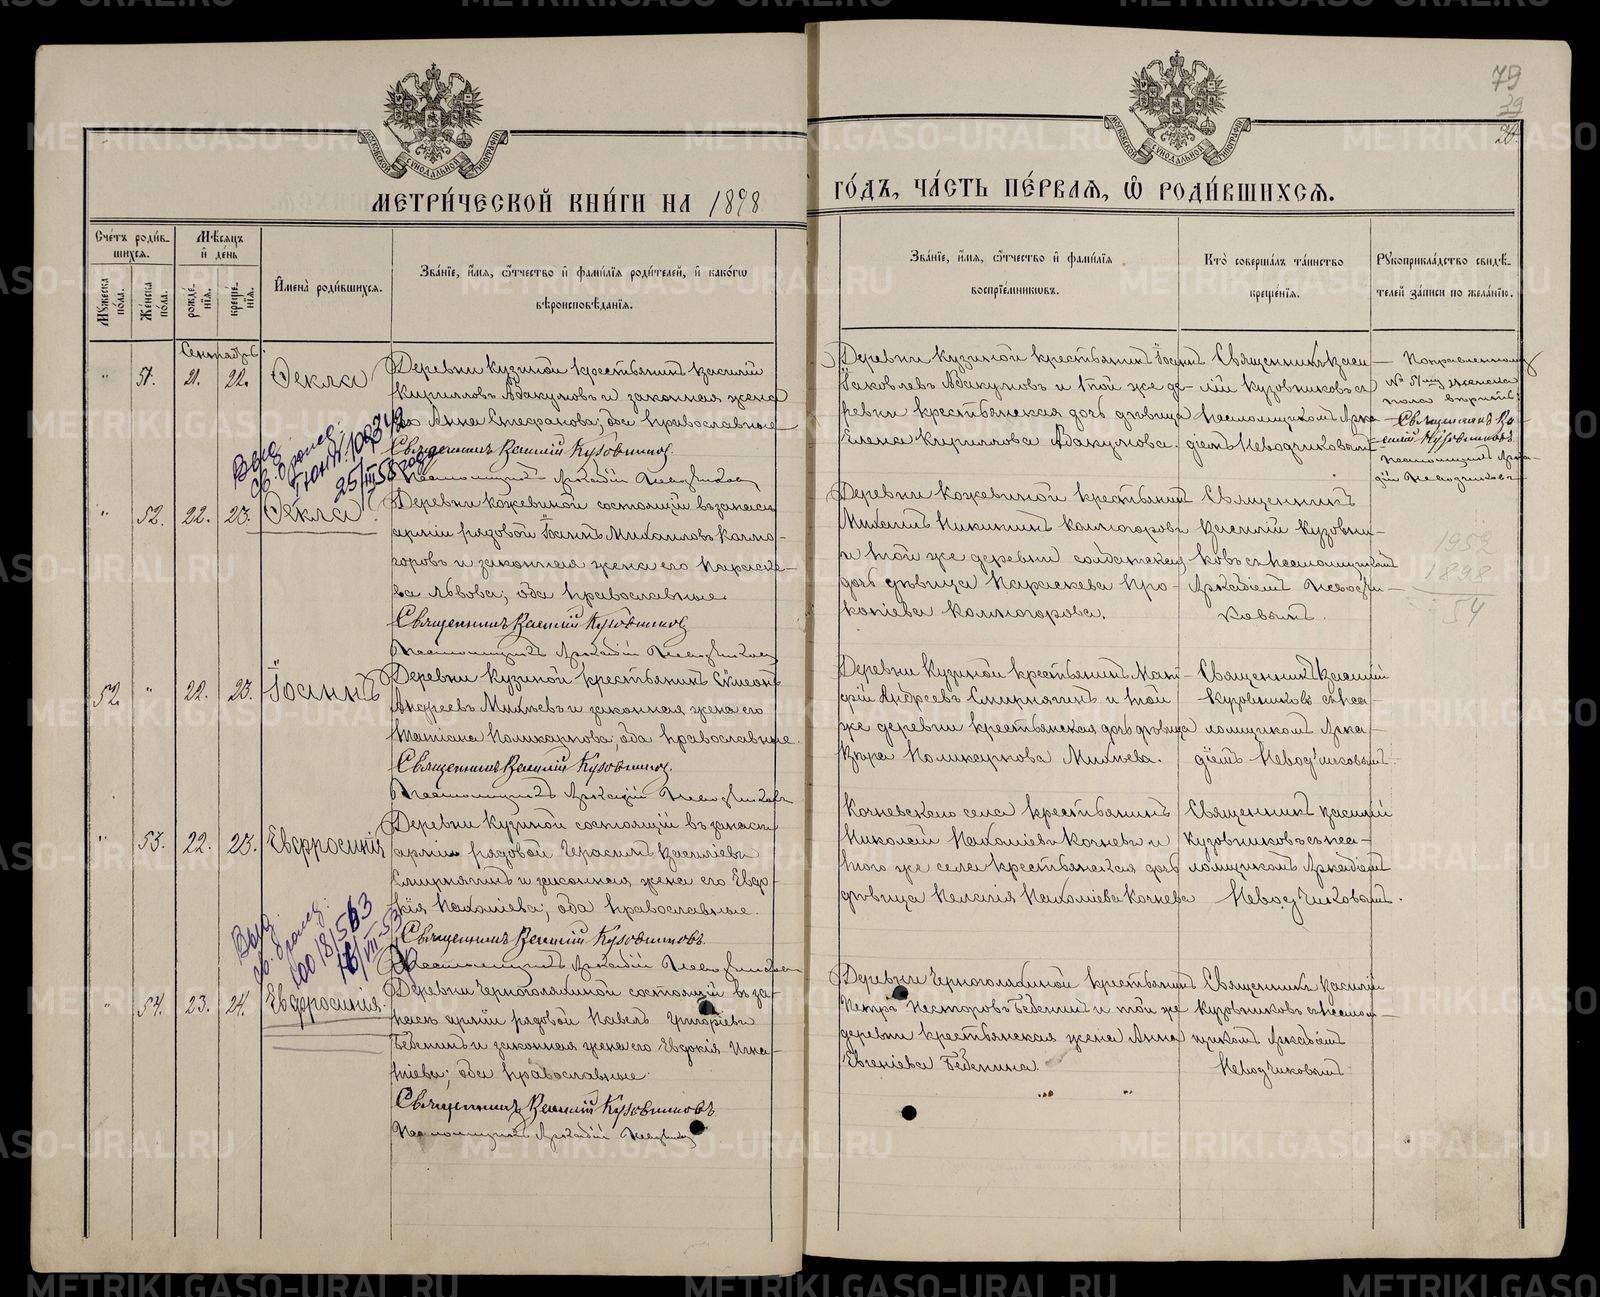 79
39
28.
МОСКОВСКОЙ СѴНОДАЛЬНОЙ ТИПОГРАФІИ
МОСКОВСКОЙ СѴНОДАЛЬНОЙ ТИПОГРАФІИ
МЕТРИ́ЧЕСКОЙ КНИ́ГИ НА 1898
ГО́ДЪ, ЧА́СТЬ ПЕ́РВАѦ, Ѿ РОДИ́ВШИХСѦ.
Сче́тъ роди́в-
шихсѧ.
Мꙋ́жеска по́ла.
Же́нска по́ла.
Мѣ́сѧцъ
и҆ де́нь
рожде́-
нїѧ.
креще́-
нїѧ.
И҆мена̀ роди́вшихсѧ.
Зва́нїе, и҆́мѧ, ѻ҆́тчество и҆ фами́лїѧ роди́телей, и҆ како́гѡ
вѣроисповѣ́данїѧ.
Зва́нїе, и҆́мѧ, ѻ҆́тчество и҆ фами́лїѧ
воспрїе́мникѡвъ.
Кто̀ соверша́лъ та́инство
креще́нїѧ.
Рꙋкоприкла́дство свидѣ́-
телей за́писи по жела́нїю.
Сентябрь.
" 51. 21. 22. Ѳекла
Деревни Кузиной крестьянинъ Василій
Кирилловъ Абакумовъ и законная жена
его Анна Стефанова; оба православные
Священникъ Василій Кузовниковъ.
Псаломщикъ Аркадій Неводчиковъ
Деревни Кузиной крестьянинъ Іоаннъ
Іаковлевъ Абакумовъ и той же де-
ревни крестьянская дочь дѣвица
Елена Кириллова Абакумова.
Священникъ Васи-
лій Кузовниковъ съ
псаломщикомъ Арка-
діемъ Неводчиковымъ
№ 51 женска
пола вѣрить:
Священникъ Ва-
силій Кузовниковъ
псаломщикъ Арка-
дій Неводчиковъ
25/III 58
" 52. 22. 23. Ѳекла
Деревни Кожевиной состоящій въ запасѣ
арміи рядовой Іоаннъ Михаиловъ Калмо-
горовъ и законная жена его Параске-
ва Львова; оба православные.
Священникъ Василій Кузовниковъ
Псаломщикъ Аркадій Неводчиковъ
Деревни Кожевиной крестьянинъ
Михаилъ Никитинъ Калмогоровъ
и той же деревни солдатская
дочь дѣвица Параскева Про-
копіева Калмогорова.
Священникъ
Василій Кузовни-
ковъ съ псаломщикомъ
Аркадіемъ Неводчи-
ковымъ.
1952
1898
54
52. " 22. 23. Іоаннъ
Деревни Кузиной крестьянинъ Симеонъ
Андреевъ Михѣевъ и законная жена его
Татіана Поликарпова; оба православные.
Священникъ Василій Кузовниковъ.
Псаломщикъ Аркадій Неводчиковъ
Деревни Кузиной крестьянинъ
Андреевъ Смирнягинъ и той
же деревни крестьянская дочь дѣвица
Поликарпова Михѣева.
Священникъ Василій
Кузовниковъ съ пса-
ломщикомъ Арка-
діемъ Неводчиковымъ.
" 53. 22. 23. Евфросинія
Деревни Кузиной состоящій въ запасѣ
арміи рядовой Герасимъ Василіевъ
Смирнягинъ и законная жена его Евдо-
кія Пахоміева; оба православные.
Священникъ Василій Кузовниковъ.
Псаломщикъ Аркадій Неводчиковъ
Кочневскаго села крестьянинъ
Николай Пахоміевъ Кочневъ и
того же села крестьянская дочь
дѣвица Пелагія Пахоміева Кочнева
Священникъ Василій
Кузовниковъ съ пса-
ломщикомъ Аркадіемъ
Неводчиковымъ.
" 54. 23. 24. Евфросинія.
Деревни Черноголяшной состоящій въ за-
пасѣ арміи рядовой Павелъ Григоріевъ
Бебенинъ и законная жена его Евдокія Игна-
тіева; оба православные.
Священникъ Василій Кузовниковъ.
Псаломщикъ Аркадій Неводчиковъ
крестьянинъ
Петръ Несторовъ Бебенинъ и той же
деревни крестьянская жена Анна
Евгеніева Бебенина.
Священникъ Василій
Кузовниковъ съ псалом-
щикомъ Аркадіемъ
Неводчиковымъ
METRIKI.GASO-URAL.RU